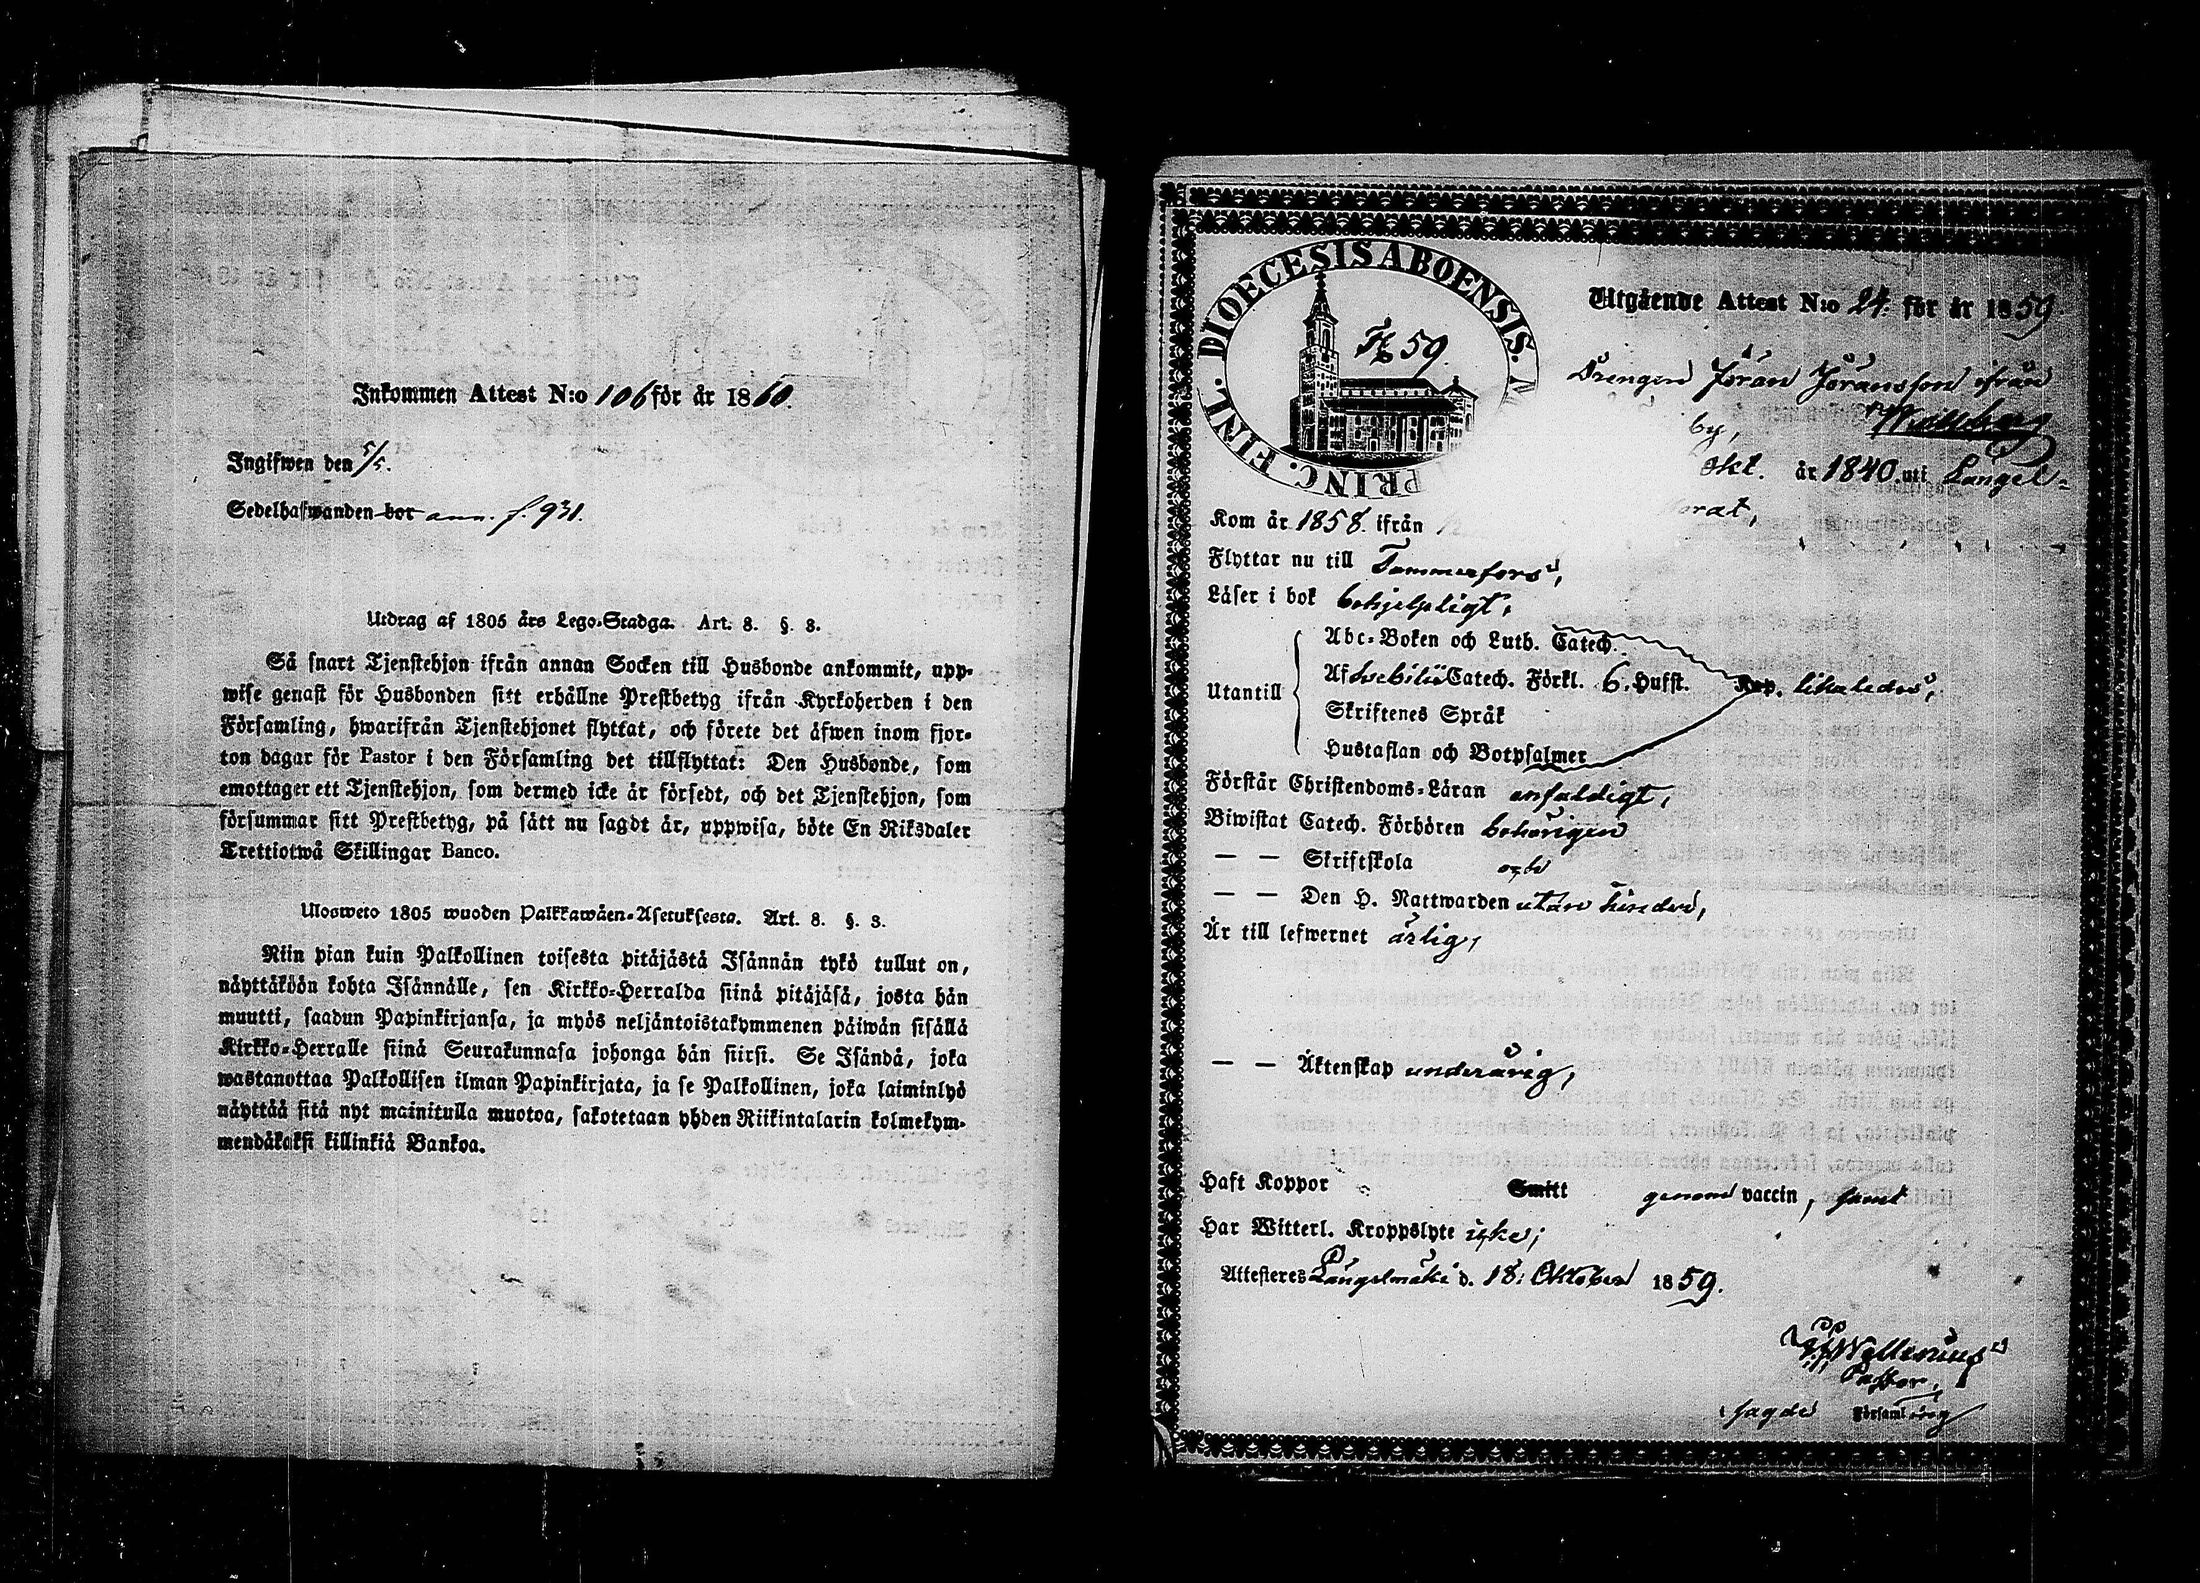 Inkommen Attest N:o 106 för år 1860.
Ingifwen den 5/5.
Sedelhafwanden bor ann. f. 931.
Utdrag af 1805 års Lego-Stadga. Art. 8. §. 3.
Så snart Tjenstehjon ifrån annan Socken till Husbonde ankommit, upp-
wise genast för Husbonden sitt erhållne Prestbetyg ifrån Kyrkoherden i den
Församling, hwarifrån Tjenstehjonet flyttat, och förete det äfwen inom fjor-
ton dagar för Pastor i den Församling det tillflyttat: Den Husbonde, som
emottager ett Tjenstehjon, som dermed icke är försedt, och det Tjenstehjon, som
försummar sitt Prestbetyg, på sätt nu sagdt är, uppwisa, böte En Riksdaler
Trettiotwå Skillingar Banco.
Ulosweto 1805 wuoden Palkkawäen-Asetuksesta. Art. 8. §. 3.
Niin pian kuin Palkollinen toisesta pitäjästä Isännän tykö tullut on,
näyttäköön kohta Isännälle, sen Kirkko-Herralda siinä pitäjäsä, josta hän
muutti, saadun Papinkirjansa, ja myös neljäntoistakymmenen päiwän sisällä
Kirkko-Herralle siinä Seurakunnasa johonga hän siirsi. Se Isändä, joka
wastanottaa Palkollisen ilman Papinkirjata, ja se Palkollinen, joka laiminlyö
näyttää sitä nyt mainitulla muotoa, sakotetaan yhden Riikintalarin kolmekym-
mendäkaksi killinkiä Bankoa.
DIOECESIS ABOENSIS. M PRINC. FINL.
59.
Utgående Attest N:o 24. för år 1859.
Drengen Jöran Jöransson ifrån
by,
Okt. år 1840. uti Längel-
Kom år 1858. ifrån
Flyttar nu till Tammerfors,
Läser i bok behjelpligt,
Utantill
Abc-Boken och Luth. Catech.
Af Svebilii Catech. Förkl. 6. Hufst. Kap. likaledes,
Skriftenes Språk
Hustaflan och Botpsalmer
Förstår Christendoms-Läran enfaldigt,
Biwistat Catech. Förhören behörigen
— — Skriftskola och
— — Den H. Nattwarden utan hinder,
Är till lefwernet ärlig,
— — Äktenskap underårig,
Haft Koppor Smitt genom vaccin, samt
Har Witterl. Kroppslyte icke;
Attesteras Längelmäki d. 18: Oktober 1859.
Pastor,
i sagde Församling